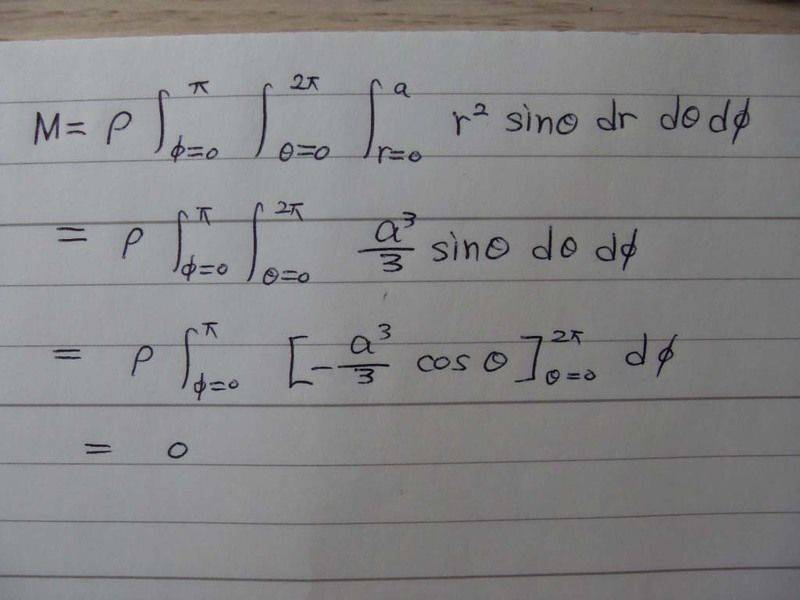 M = ρ ∫_{ϕ=0}^{π} ∫_{θ=0}^{2π} ∫_{r=0}^{a} r² sinθ dr dθ dϕ
= ρ ∫_{ϕ=0}^{π} ∫_{θ=0}^{2π} a³/3 sinθ dθ dϕ
= ρ ∫_{ϕ=0}^{π} [-a³/3 cos θ]_{θ=0}^{2π} dϕ
= 0